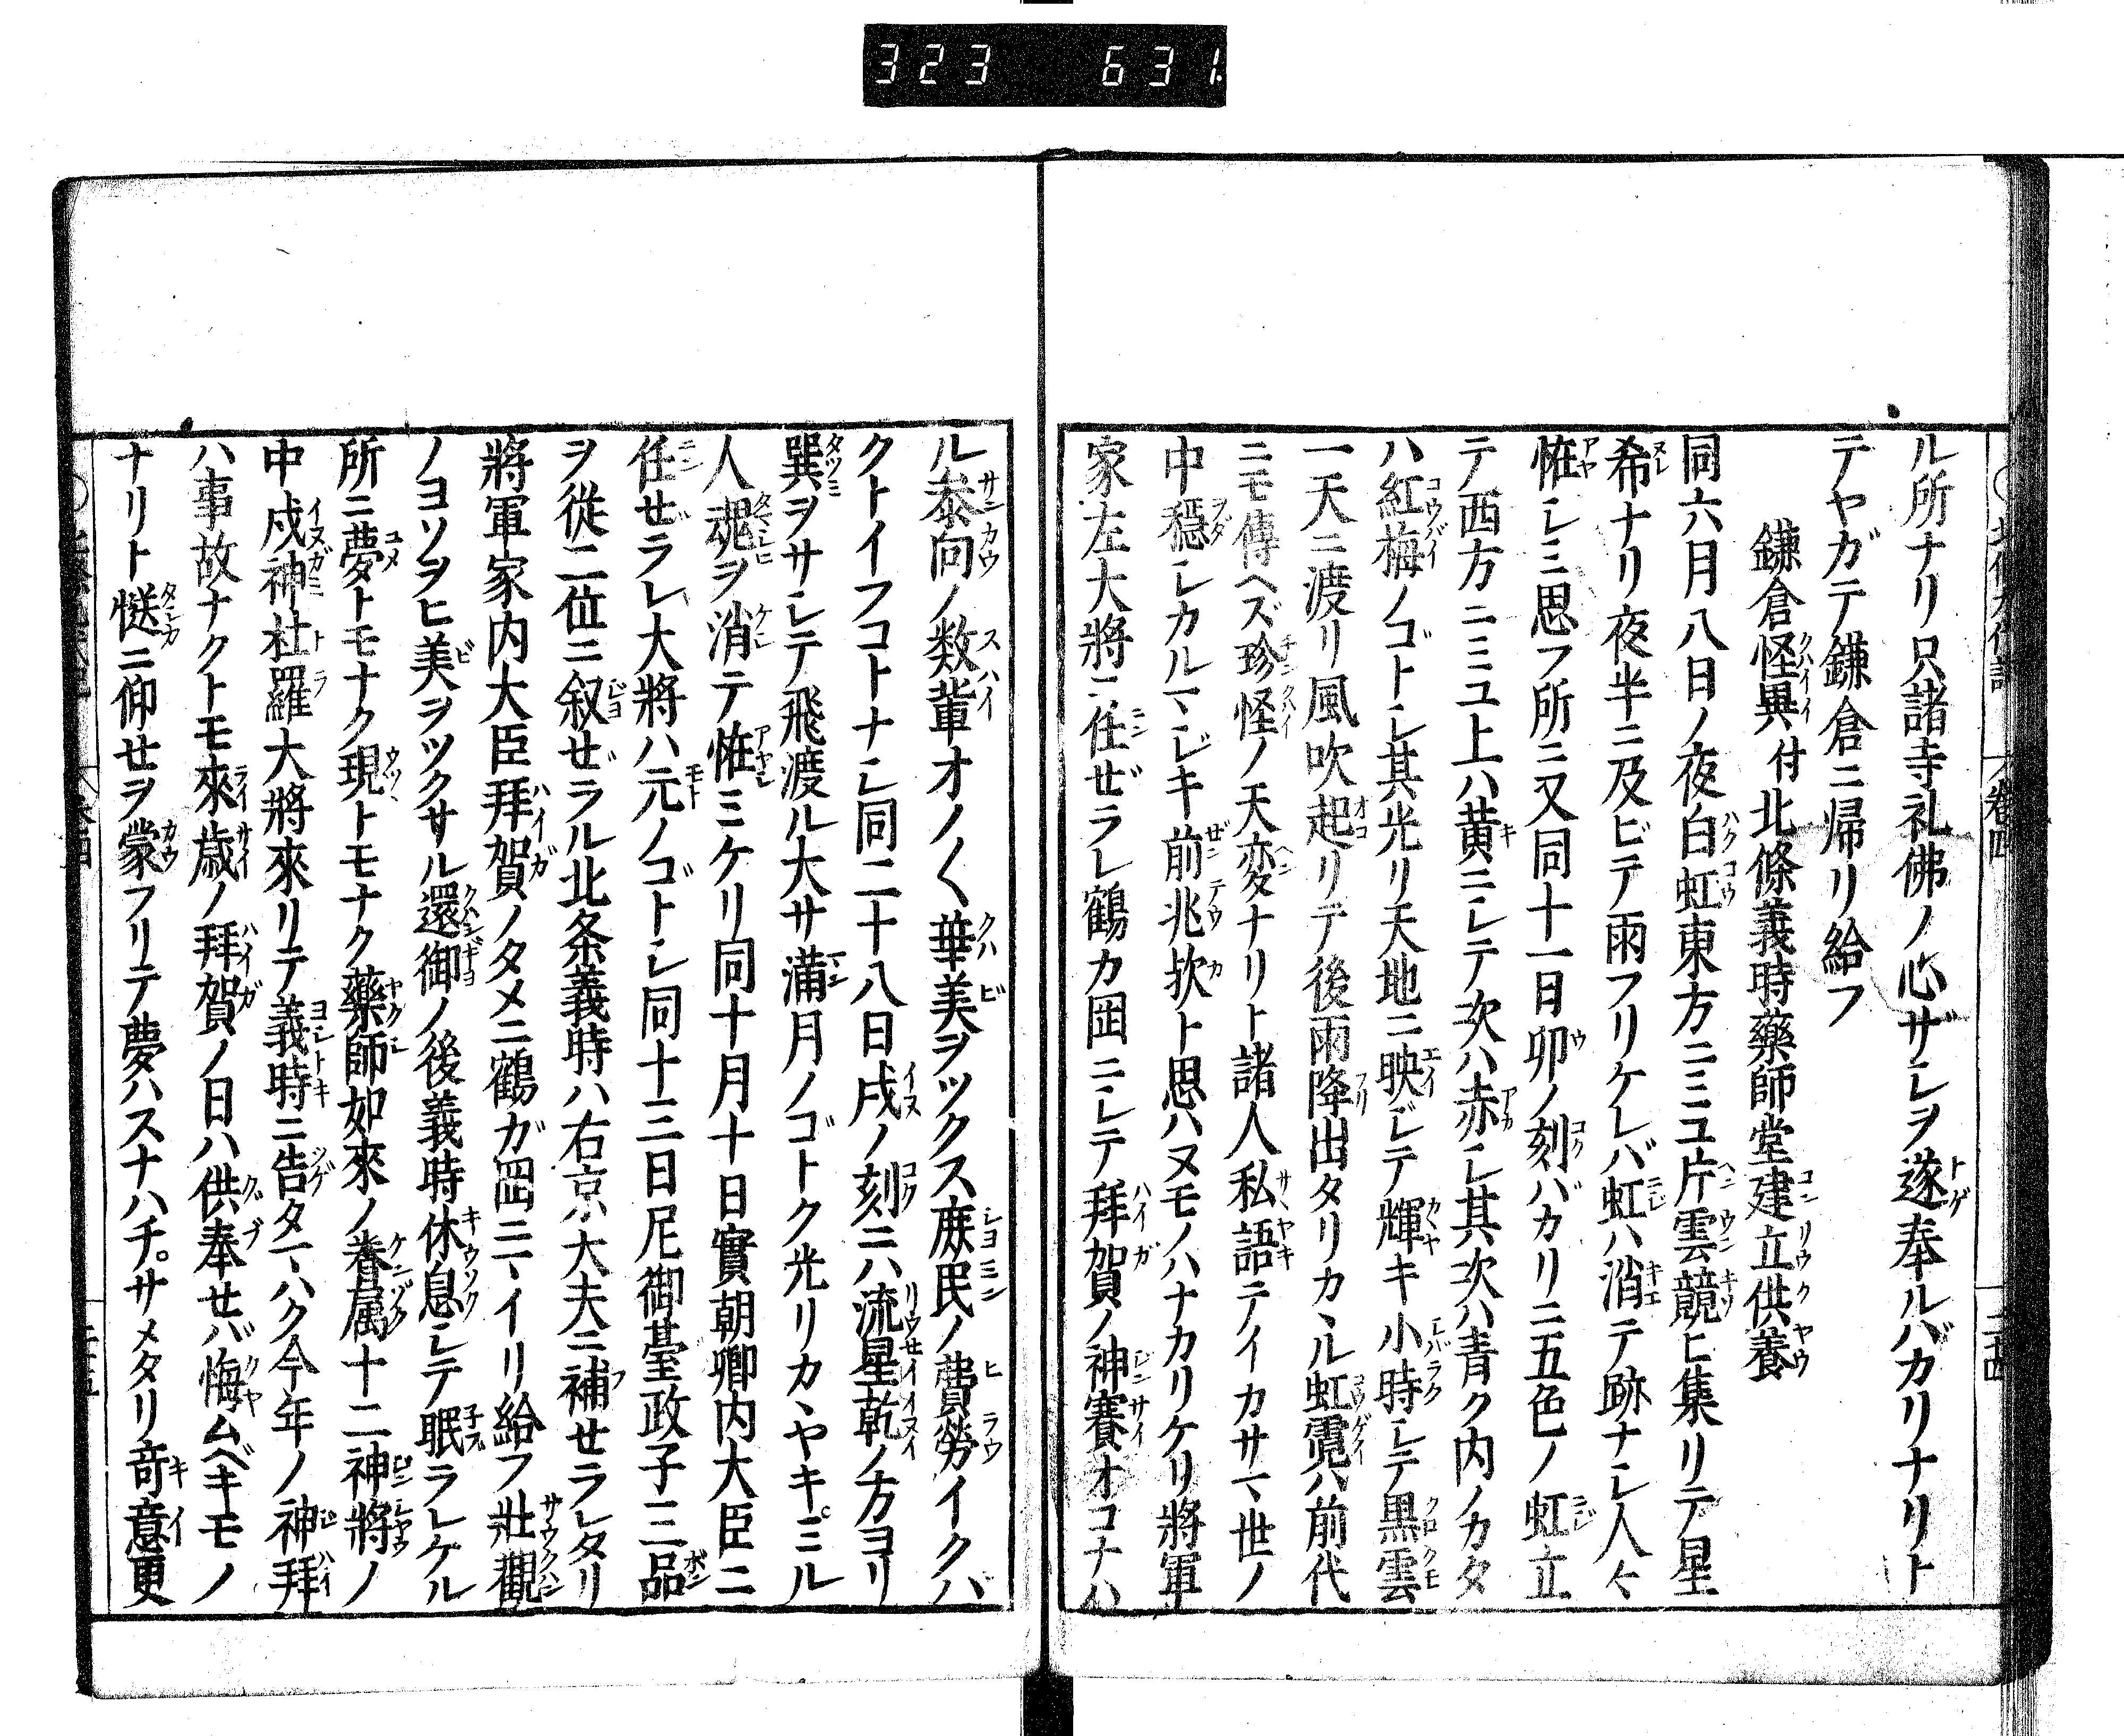 323 631
ル所ナリ只諸寺礼佛ノ心ザシヲ遂奉ルバカリナリト
テヤガテ鎌倉ニ帰リ給フ
鎌倉怪異付北條義時藥師堂建立供養
同六月八日ノ夜白虹東方ニミユ片雲競ヒ集リテ星
希ナリ夜半ニ及ビテ雨フリケレバ虹ハ消テ跡ナシ人々
恠シミ思フ所ニ又同十一日卯ノ刻バカリニ五色ノ虹立
テ西方ニミユ上ハ黄ニシテ次ハ赤シ其次ハ青ク内ノカタ
ハ紅梅ノゴトシ其光リ天地ニ映ジテ輝キ小時シテ黒雲
一天ニ渡リ風吹起リテ後雨降出タリカヽル虹霓ハ前代
ニモ傳ヘズ珍怪ノ天変ナリト諸人私語テイカサマ世ノ
中穏シカルマジキ前兆欤ト思ハヌモノハナカリケリ將軍
家左大將ニ任ゼラレ鶴カ岡ニシテ拜賀ノ神賽オコナハ
ル泰向ノ数輩オノ〱華美ヲツクス庶民ノ費勞イクハ
クトイフコトナシ同二十八日戌ノ刻ニハ流星乾ノ方ヨリ
巽ヲサシテ飛渡ル大サ滿月ノゴトク光リカヽヤキミル
人魂ヲ消テ恠ミケリ同十月十日實朝卿内大臣ニ
任ゼラレ大將ハ元ノゴトシ同十三日尼御臺政子三品
ヲ從二位ニ叙ゼラル北条義時ハ右京大夫ニ補セラレタリ
將軍家内大臣拜賀ノタメニ鶴ガ岡ニマイリ給フ壯觀
ノヨソヲヒ美ヲツクサル還御ノ後義時休息シテ眠ラレケル
所ニ夢トモナク現トモナク藥師如來ノ眷属十二神將ノ
中戌神社羅大將來リテ義時ニ告タマハク今年ノ神拜
ハ事故ナクトモ來歳ノ拜賀ノ日ハ供奉セバ悔ムベキモノ
ナリト慥ニ仰セヲ蒙フリテ夢ハスナハチサメタリ竒意更